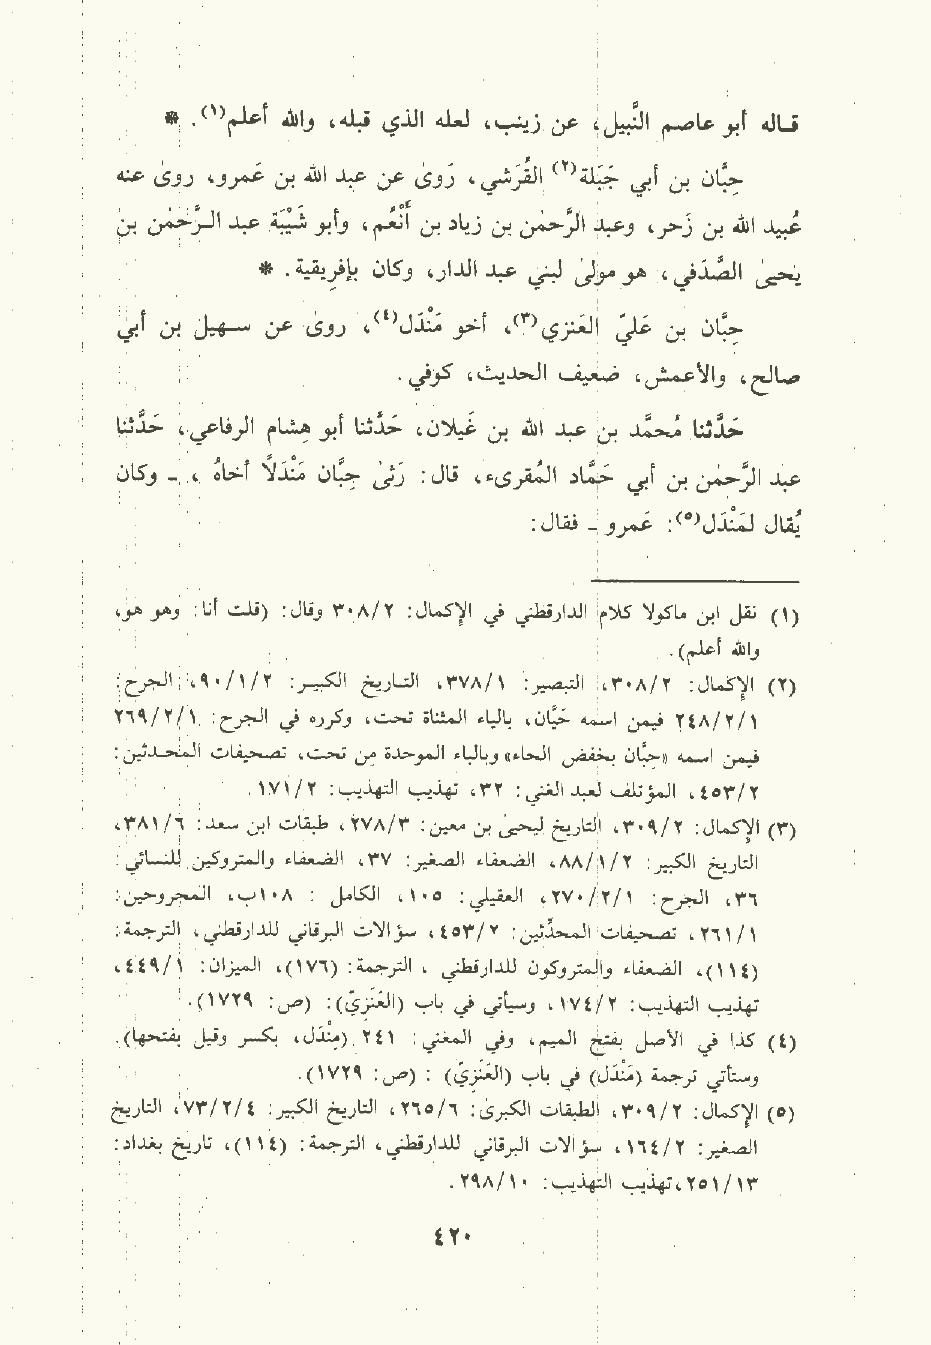 قاله أبو عاصم النَّبيل، عن زينب، لعله الذي قبله، والله أعلم(١). *
حِبَّان بن أبي جَبَلة(٢) القُرَشي، رَوىٰ عن عبد الله بن عَمرو، روىٰ عنه
عُبيد الله بن زَحر، وعبد الرَّحمٰن بن زياد بن أَنْعُم، وأبو شَيْبَة عبد الرَّحمٰن بن
يحيىٰ الصَّدَفي، هو مولىٰ لبني عبد الدار، وكان بإفريقية. *
حِبَّان بن عَليّ العَنزي(٣)، أخو مَنْدَل(٤)، روىٰ عن سهيل بن أبي
صالح، والأعمش، ضعيف الحديث، كوفي.
حَدَّثنا مُحمَّد بن عبد الله بن غَيلان، حَدَّثنا أبو هشام الرفاعي، حَدَّثنا
عبد الرَّحمٰن بن أبي حَمَّاد المُقرىء، قال: رَثىٰ حِبَّان مَنْدَلاً أخاهُ، ـ وكان
يُقال لمَنْدَل(٥): عَمرو ـ فقال:
(١) نقل ابن ماكولا كلام الدارقطني في الإكمال: ٣٠٨/٢ وقال: (قلت أنا: وهو هو،
والله أعلم).
(٢) الإكمال: ٣٠٨/٢، التبصير: ٣٧٨/١، التاريخ الكبير: ٩٠/١/٢، الجرح:
٢٤٨/٢/١ فيمن اسمه خَيَّان، بالياء المثناة تحت، وكرره في الجرح: ٢٦٩/٢/١
فيمن اسمه «حِبَّان بخفض الحاء» وبالباء الموحدة من تحت، تصحيفات المحدثين:
٤٥٣/٢، المؤتلف لعبد الغني: ٣٢، تهذيب التهذيب: ١٧١/٢.
(٣) الإكمال: ٣٠٩/٢، التاريخ ليحيىٰ بن معين: ٢٧٨/٣، طبقات ابن سعد: ٣٨١/٦،
التاريخ الكبير: ٨٨/١/٢، الضعفاء الصغير: ٣٧، الضعفاء والمتروكين للنسائي:
٣٦، الجرح: ٢٧٠/٢/١، العقيلي: ١٠٥، الكامل : ١٠٨ب، المجروحين:
٢٦١/١، تصحيفات المحدِّثين: ٤٥٣/٢، سؤالات البرقاني للدارقطني، الترجمة:
(١١٤)، الضعفاء والمتروكون للدارقطني ، الترجمة: (١٧٦)، الميزان: ٤٤٩/١،
تهذيب التهذيب: ١٧٤/٢، وسيأتي في باب (العَنَزيّ): (ص: ١٧٢٩).
(٤) كذا في الأصل بفتح الميم، وفي المغني: ٢٤١ (مِنْدَل، بكسر وقيل بفتحها).
وستأتي ترجمة (مَنْدَل) في باب (العَنَزيّ) : (ص: ١٧٢٩).
(٥) الإكمال: ٣٠٩/٢، الطبقات الكبرىٰ: ٢٦٥/٦، التاريخ الكبير: ٧٣/٢/٤، التاريخ
الصغير: ١٦٤/٢، سؤالات البرقاني للدارقطني، الترجمة: (١١٤)، تاريخ بغداد:
٢٥١/١٣، تهذيب التهذيب: ٢٩٨/١٠.
٤٢٠